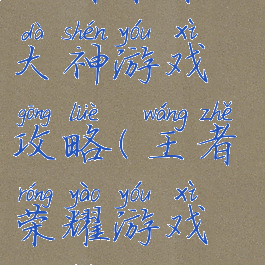 dà shén yóu xì
大神游戏
gōng lüè wáng zhě
攻略(王者
róng yào yóu xì
荣耀游戏